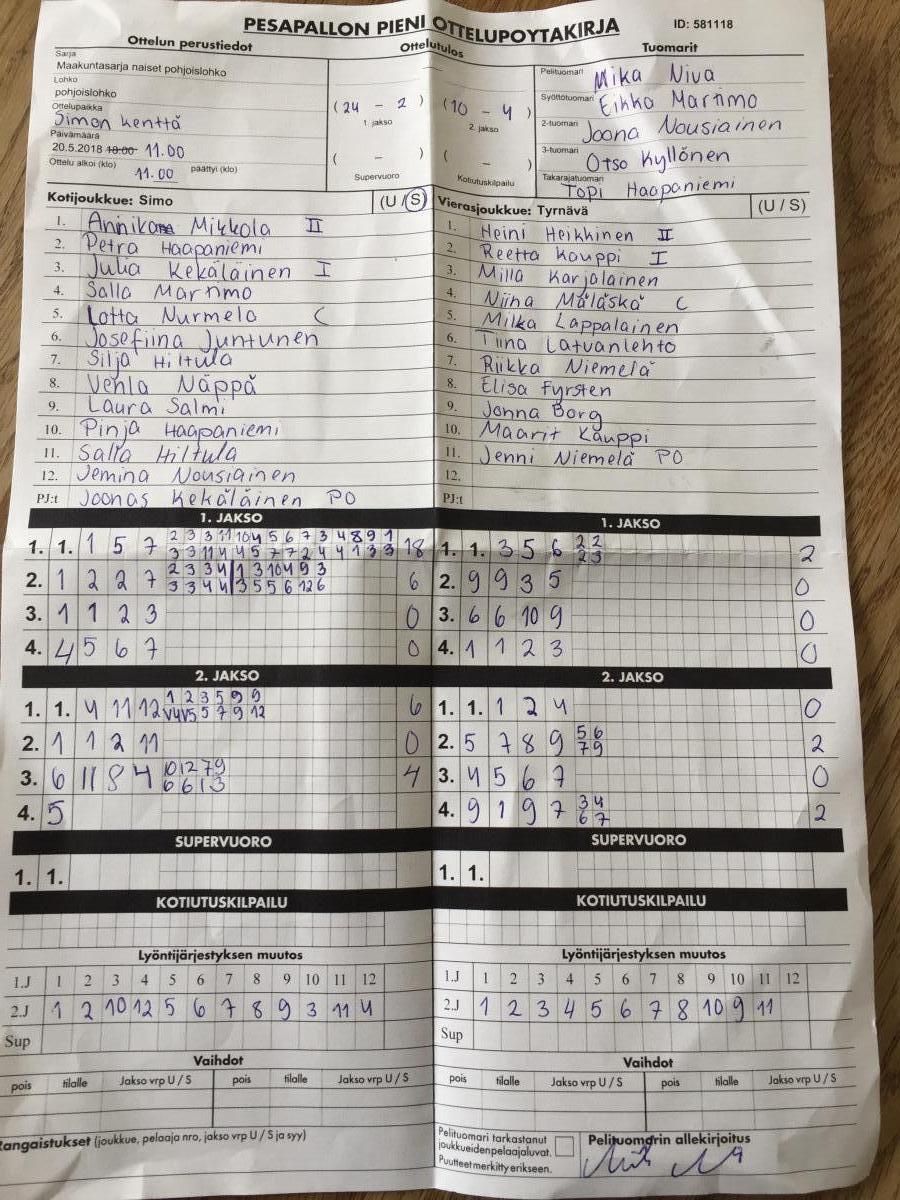 PESAPALLON PIENI OTTELUPOYTAKIRJA
ID: 581118
Ottelun perustiedot
Ottelutulos
Tuomarit
Sarja
Maakuntasarja naiset pohjoislohko
Lohko
pohjoislohko
Ottelupaikka
Simon kenttä
Päivämäärä
20.5.2018 18:00 11.00
Ottelu alkoi (klo) 11.00 päättyi (klo)
(24 - 2)
1. jakso
(10 - 4)
2. jakso
( - )
Supervuoro
( - )
Kotiutuskilpailu
Pelituomari Mika Niva
Syöttötuomari Eikka Martimo
2-tuomari Joona Nousiainen
3-tuomari Otso Kyllönen
Takarajatuomari Topi Haapaniemi
Kotijoukkue: Simo (U / S)
1. Annika Mikkola II
2. Petra Haapaniemi
3. Julia Kekäläinen I
4. Salla Martimo
5. Lotta Nurmela C
6. Josefiina Juntunen
7. Silja Hiltula
8. Venla Näppä
9. Laura Salmi
10. Pinja Haapaniemi
11. Salla Hiltula
12. Jemina Nousiainen
PJ:t Joonas Kekäläinen PO
Vierasjoukkue: Tyrnävä (U / S)
1. Heini Heikkinen II
2. Reetta Kauppi I
3. Milla Karjalainen
4. Niina Mäläskä C
5. Milka Lappalainen
6. Tiina Latvanlehto
7. Riikka Niemelä
8. Elisa Fyrsten
9. Jonna Borg
10. Maarit Kauppi
11. Jenni Niemelä PO
12.
PJ:t
1. JAKSO
1. 1. 1 5 7 2 3 3 11 10 4 5 6 7 3 4 8 9 1 18
3 3 11 4 4 5 7 7 2 4 4 1 3 3
2. 1 2 2 7 2 3 3 4 1 3 10 4 9 3 6
3 3 4 4 3 5 5 6 12 6
3. 1 1 2 3 0
4. 4 5 6 7 0
1. JAKSO
1. 1. 3 5 6 2 2 2
2 3
2. 9 9 3 5 0
3. 6 6 10 9 0
4. 1 1 2 3 0
2. JAKSO
1. 1. 4 11 12 1 2 3 5 9 9 6
V4 V5 5 7 9 12
2. 1 1 2 11 0
3. 6 11 8 4 10 12 7 9 4
6 6 1 3
4. 5
2. JAKSO
1. 1. 1 2 4 0
2. 5 7 8 9 5 6 2
7 9
3. 4 5 6 7 0
4. 9 1 9 7 3 4 2
6 7
SUPERVUORO
1. 1.
SUPERVUORO
1. 1.
KOTIUTUSKILPAILU
KOTIUTUSKILPAILU
Lyöntijärjestyksen muutos
1.J 1 2 3 4 5 6 7 8 9 10 11 12
2.J 1 2 10 12 5 6 7 8 9 3 11 4
Sup
Lyöntijärjestyksen muutos
1.J 1 2 3 4 5 6 7 8 9 10 11 12
2.J 1 2 3 4 5 6 7 8 10 9 11
Sup
Vaihdot
pois tilalle Jakso vrp U / S pois tilalle Jakso vrp U / S
Vaihdot
pois tilalle Jakso vrp U / S pois tilalle Jakso vrp U / S
Rangaistukset (joukkue, pelaaja nro, jakso vrp U / S ja syy)
Pelituomari tarkastanut
joukkueiden pelaajaluvat.
Puutteet merkitty erikseen.
Pelituomarin allekirjoitus